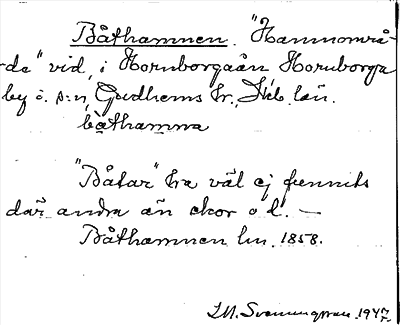 Båthamnen. "Hamnområ-
de" vid i Hornborgaån Hornborga
by o. s:n, Gudhems hr, Skb. län.
båthamna
"Båtar" ha väl ej funnits
där andra än ekor o.d. —
Båthamnen lm. 1858.
J.M. Svenungsson 1947